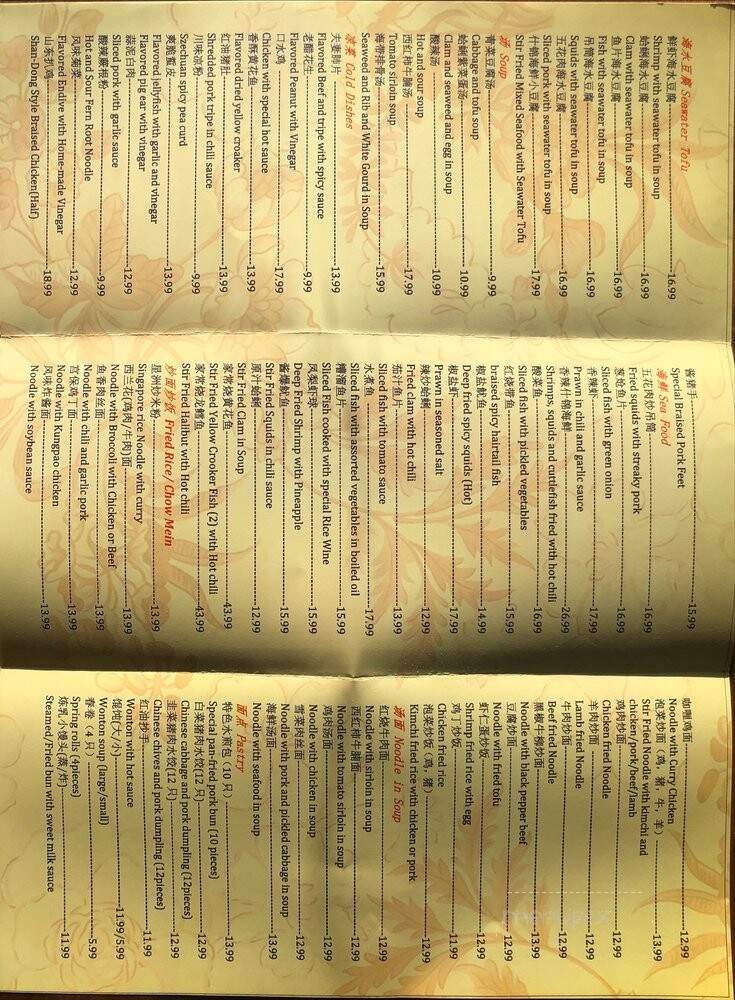 海水豆腐 Seawater Tofu
鲜虾海水豆腐 16.99
Shrimp with seawater tofu in soup
蛤蜊海水豆腐 16.99
Clam with seawater tofu in soup
鱼片海水豆腐 16.99
Fish with seawater tofu in soup
吊筒海水豆腐 16.99
Squids with seawater tofu in soup
五花肉海水豆腐 16.99
Sliced pork with seawater tofu in soup
什锦海鲜小豆腐 17.99
Stir Fried Mixed Seafood with Seawater Tofu
汤 Soup
青菜豆腐汤 9.99
Cabbage and tofu soup
蛤蜊紫菜蛋汤 10.99
Clam and seaweed and egg in soup
酸辣汤 10.99
Hot and sour soup
西红柿牛腩汤 17.99
Tomato sirloin soup
海带排骨汤 15.99
Seaweed and Rib and White Gourd in Soup
凉菜 Cold Dishes
夫妻肺片 13.99
Flavored Beef and tripe with spicy sauce
老醋花生 9.99
Flavored Peanut with Vinegar
口水鸡 17.99
Chicken with special hot sauce
香酥黄花鱼 13.99
Flavored fried yellow croaker
红油猪肚 13.99
Shredded pork tripe in chili sauce
川味凉粉 9.99
Szechuan spicy pea curd
爽脆蜇皮 13.99
Flavored jellyfish with garlic and vinegar
Flavored pig ear with vinegar
蒜泥白肉 12.99
Sliced pork with garlic sauce
酸辣蕨根粉 9.99
Hot and Sour Fern Root Noodle
风味菊菜 12.99
Flavored Endive with Home-made Vinegar
山东扒鸡 18.99
Shan-Dong Style Braised Chicken(Half)
酱猪手 15.99
Special Braised Pork Feet
海鲜 Sea Food
五花肉炒吊筒 16.99
Fried squids with streaky pork
葱烧鱼片 16.99
Sliced fish with green onion
香辣虾 17.99
Prawn in chili and garlic sauce
香辣什锦海鲜 26.99
Shrimps, squids and cuttlefish fried with hot chili
酸菜鱼 16.99
Sliced fish with pickled vegetables
红烧带鱼 15.99
braised spicy hairtail fish
椒盐鱿鱼 14.99
Deep fried spicy squids (Hot)
椒盐虾 17.99
Prawn in seasoned salt
辣炒蛤蜊 12.99
Fried clam with hot chili
茄汁鱼片 13.99
Sliced fish with tomato sauce
水煮鱼 17.99
Sliced fish with assorted vegetables in boiled oil
糟溜鱼片 15.99
Sliced Fish cooked with special Rice Wine
凤梨虾球 15.99
Deep Fried Shrimp with Pineapple
酱爆鱿鱼 15.99
Stir Fried Squids in chili sauce
原汁蛤蜊 12.99
Stir Fried Clam in Soup
家常烧黄花鱼 43.99
Stir Fried Yellow Crooker Fish (2) with Hot chili
家常烧龙鳕鱼 43.99
Stir Fried Halibut with Hot chili
炒面炒饭 Fried Rice/ Chow Mein
星洲炒米粉 13.99
Singapore rice Noodle with curry
西兰花(鸡肉/牛肉)面 13.99
Noodle with Broccoli with Chicken or Beef
鱼香肉丝面 13.99
Noodle with chili and garlic pork
宫保鸡丁面 13.99
Noodle with Kungpao chicken
风味炸酱面 13.99
Noodle with soybean sauce
咖喱鸡面 12.99
Noodle with Curry Chicken
泡菜炒面（鸡，猪，牛，羊） 13.99
Stir Fried Noodle with kimchi and
chicken/pork/beef/lamb
鸡肉炒面 12.99
Chicken fried Noodle
羊肉炒面 12.99
Lamb fried Noodle
牛肉炒面 12.99
Beef fried Noodle
黑椒牛柳炒面 13.99
Noodle with black pepper beef
豆腐炒面 12.99
Noodle with fried tofu
虾仁蛋炒饭 12.99
Shrimp fried rice with egg
鸡丁炒饭 11.99
Chicken fried rice
泡菜炒饭（鸡，猪） 12.99
Kimchi fried rice with chicken or pork
汤面 Noodle in Soup
红烧牛肉面 12.99
Noodle with sirloin in soup
西红柿牛腩面 12.99
Noodle with tomato sirloin in soup
鸡肉汤面 12.99
Noodle with chicken in soup
雪菜肉丝面 12.99
Noodle with pork and pickled cabbage in soup
海鲜汤面 13.99
Noodle with seafood in soup
面点 Pastry
特色水煎包（10 只） 13.99
Special pan-fried pork bun (10 pieces)
白菜猪肉水饺(12 只) 12.99
Chinese cabbage and pork dumpling (12pieces)
韭菜猪肉水饺(12 只) 12.99
Chinese chives and pork dumpling (12pieces)
红油抄手 11.99
Wonton with hot sauce
馄饨(大/小) 11.99/5.99
Wonton soup (large/small)
春卷（4 只） 5.99
Spring rolls (4pieces)
炼乳小馒头(蒸/炸) 11.99
Steamed/Fried bun with sweet milk sauce